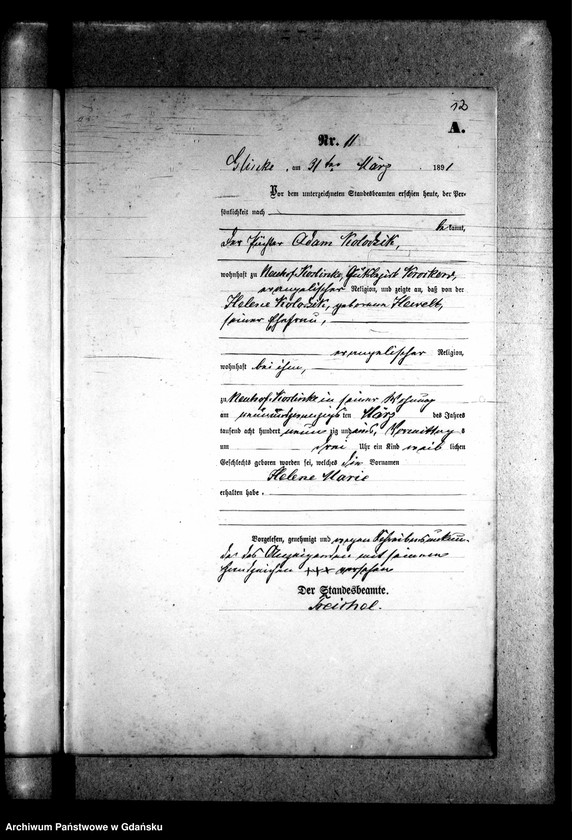 12
A.
Nr. 11
am 31ten März 1891
Vor dem unterzeichneten Standesbeamten erschien heute, der Per-
sönlichkeit nach
bekannt,
der Adam Kolodzik,
wohnhaft zu Neuhof
evangelischer Religion, und zeigte an, daß von der
Helene Kolodzik, geborene Hewelt,
seiner Ehefrau,
evangelischer Religion,
wohnhaft bei ihm,
zu Neuhof in seiner Wohnung
am neunundzwanzigsten März des Jahres
tausend acht hundert neunzig und eins, Vormittags
um drei Uhr ein Kind weiblichen
Geschlechts geboren worden sei, welches die Vornamen
Helene Marie
erhalten habe.
Vorgelesen, genehmigt und wegen Schreibensunkun-
de des Anzeigenden mit seinem
Handzeichen +++ versehen
Der Standesbeamte.
Archiwum Państwowe w Gdańsku